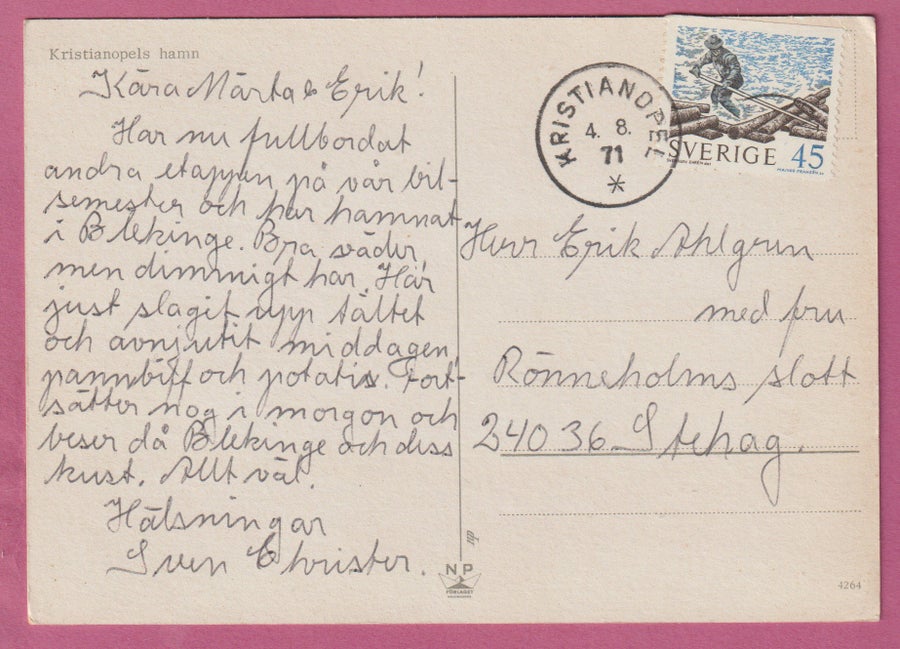 Kristianopels hamn
Kära Märta & Erik!
Har nu fullbordat
andra etappen på vår bil-
semester och har hamnat
i Blekinge. Bra väder
men dimmigt här. Har
just slagit upp tältet
och avnjutit middagen,
pannbiff och potatis. Fort-
sätter nog i morgon och
beser då Blekinge och dess
kust. Allt väl.
Hälsningar
Sven Christer.
KRISTIANOPEL
4. 8.
71
SVERIGE 45
Herr Erik Ahlgren
med fru
Rönneholms slott
240 36 Stehag.
np
NP
FÖRLAGET
4264